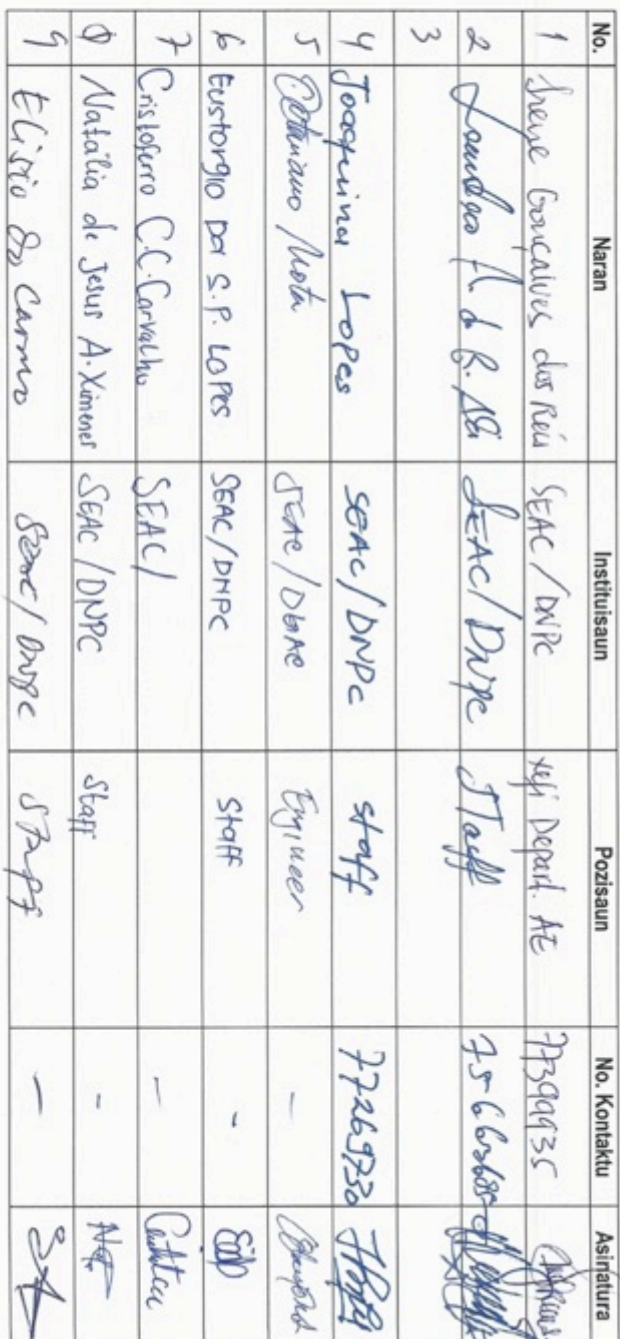 No. Naran Instituisaun Pozisaun No. Kontaktu Asinatura
1 Irene Gonçalves dos Reis SEAC/DNPC xefi Depart. AE 77399935
2 A. de SEAC/DNPC Staff
3
4 Joaquina Lopes SEAC/DNPC staff 77269730
5 Octaviano Mota SEAC/DGAC Engineer -
6 Eustorgio Dor S.P. LOPES SEAC/DNPC Staff -
7 Cristoferro C.C. Carvalho SEAC/ -
8 Natalia de Jesus A. Ximenes SEAC/DNPC Staff -
9 Elisio do Carmo SEAC/DNPC Staff -